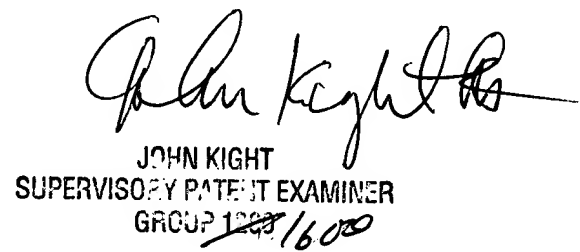 John Kight
JOHN KIGHT
SUPERVISORY PATENT EXAMINER
GROUP 1200 /600